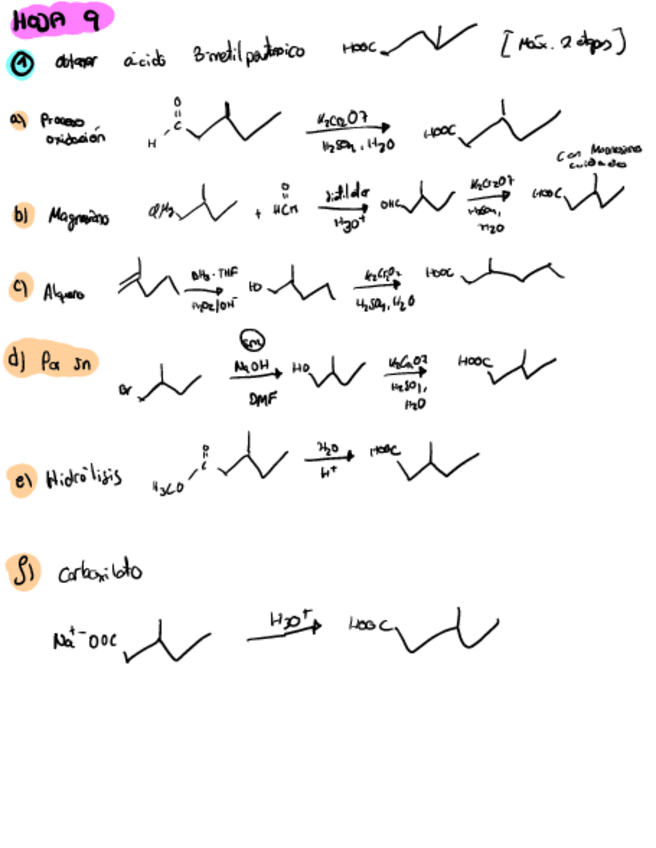 HOJA 9
① obtener ácido 3-metil pentanoico HOOC [Máx. 2 etapas]
a) Proceso oxidación H O C K2Cr2O7 H2SO4, H2O HOOC
Con Magnesiano cuidado
b) Magnesiano + HCH O destilador H3O+ OHC K2Cr2O7 H2SO4, H2O HOOC
c) Alqueno BH3·THF H2O2/OH- HO K2Cr2O7 H2SO4, H2O HOOC
d) Por SN Br SN2 NaOH DMF HO K2Cr2O7 H2SO4, H2O HOOC
e) Hidrólisis H3CO C O H2O H+ HOOC
f) carboxilato
Na+ -OOC H3O+ HOOC